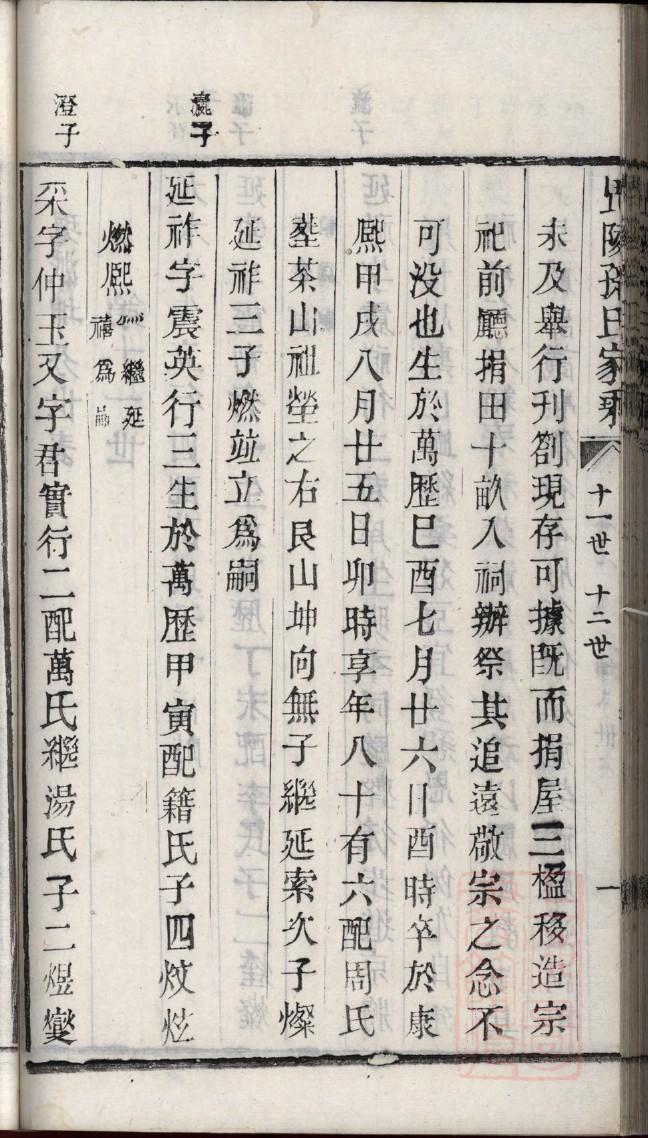 孫氏家乘
十一世 十二世
一
未及舉行刊劄現存可據旣而捐屋三楹移造宗
祀前廳捐田十畝入祠辦祭其追遠敬宗之念不
可没也生於萬歷巳酉七月廿六日酉時卒於康
熈甲戌八月廿五日卯時享年八十有六配周氏
塟茶山祖塋之右艮山坤向無子繼延索次子燦
延祚三子燃竝立爲嗣
瀛子
延祚字震英行三生於萬歷甲寅配籍氏子四炆炫
燃熈
繼延
禧爲嗣
澄子
采字仲玉又字君實行二配萬氏繼湯氏子二煜燮